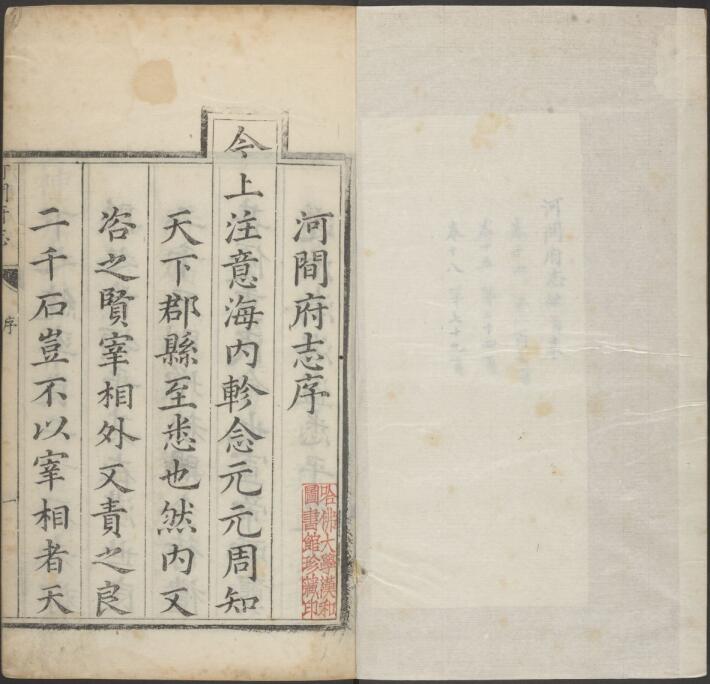 河間府志序
今上注意海内軫念元元周知
天下郡縣至悉也然内又
咨之賢宰相外又責之良
二千石豈不以宰相者天
河間府志
序
一
哈佛大學漢和
圖書館珍藏印